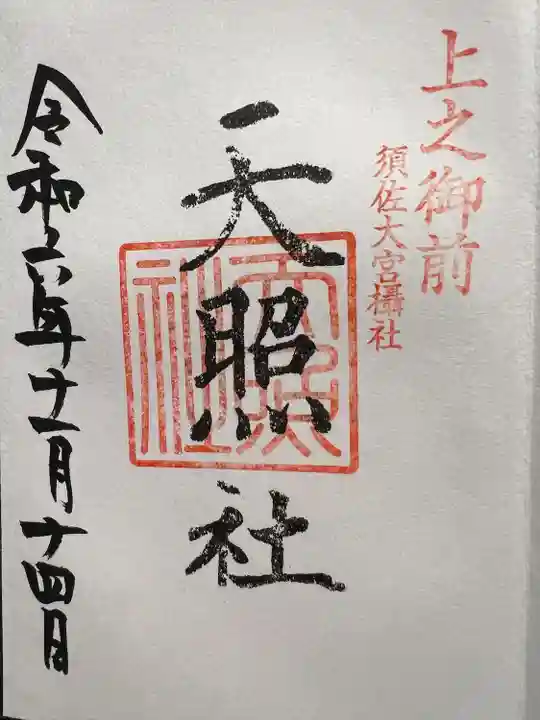 上之御前
須佐大宮攝社
天照社
天照社
令和六年十一月十四日